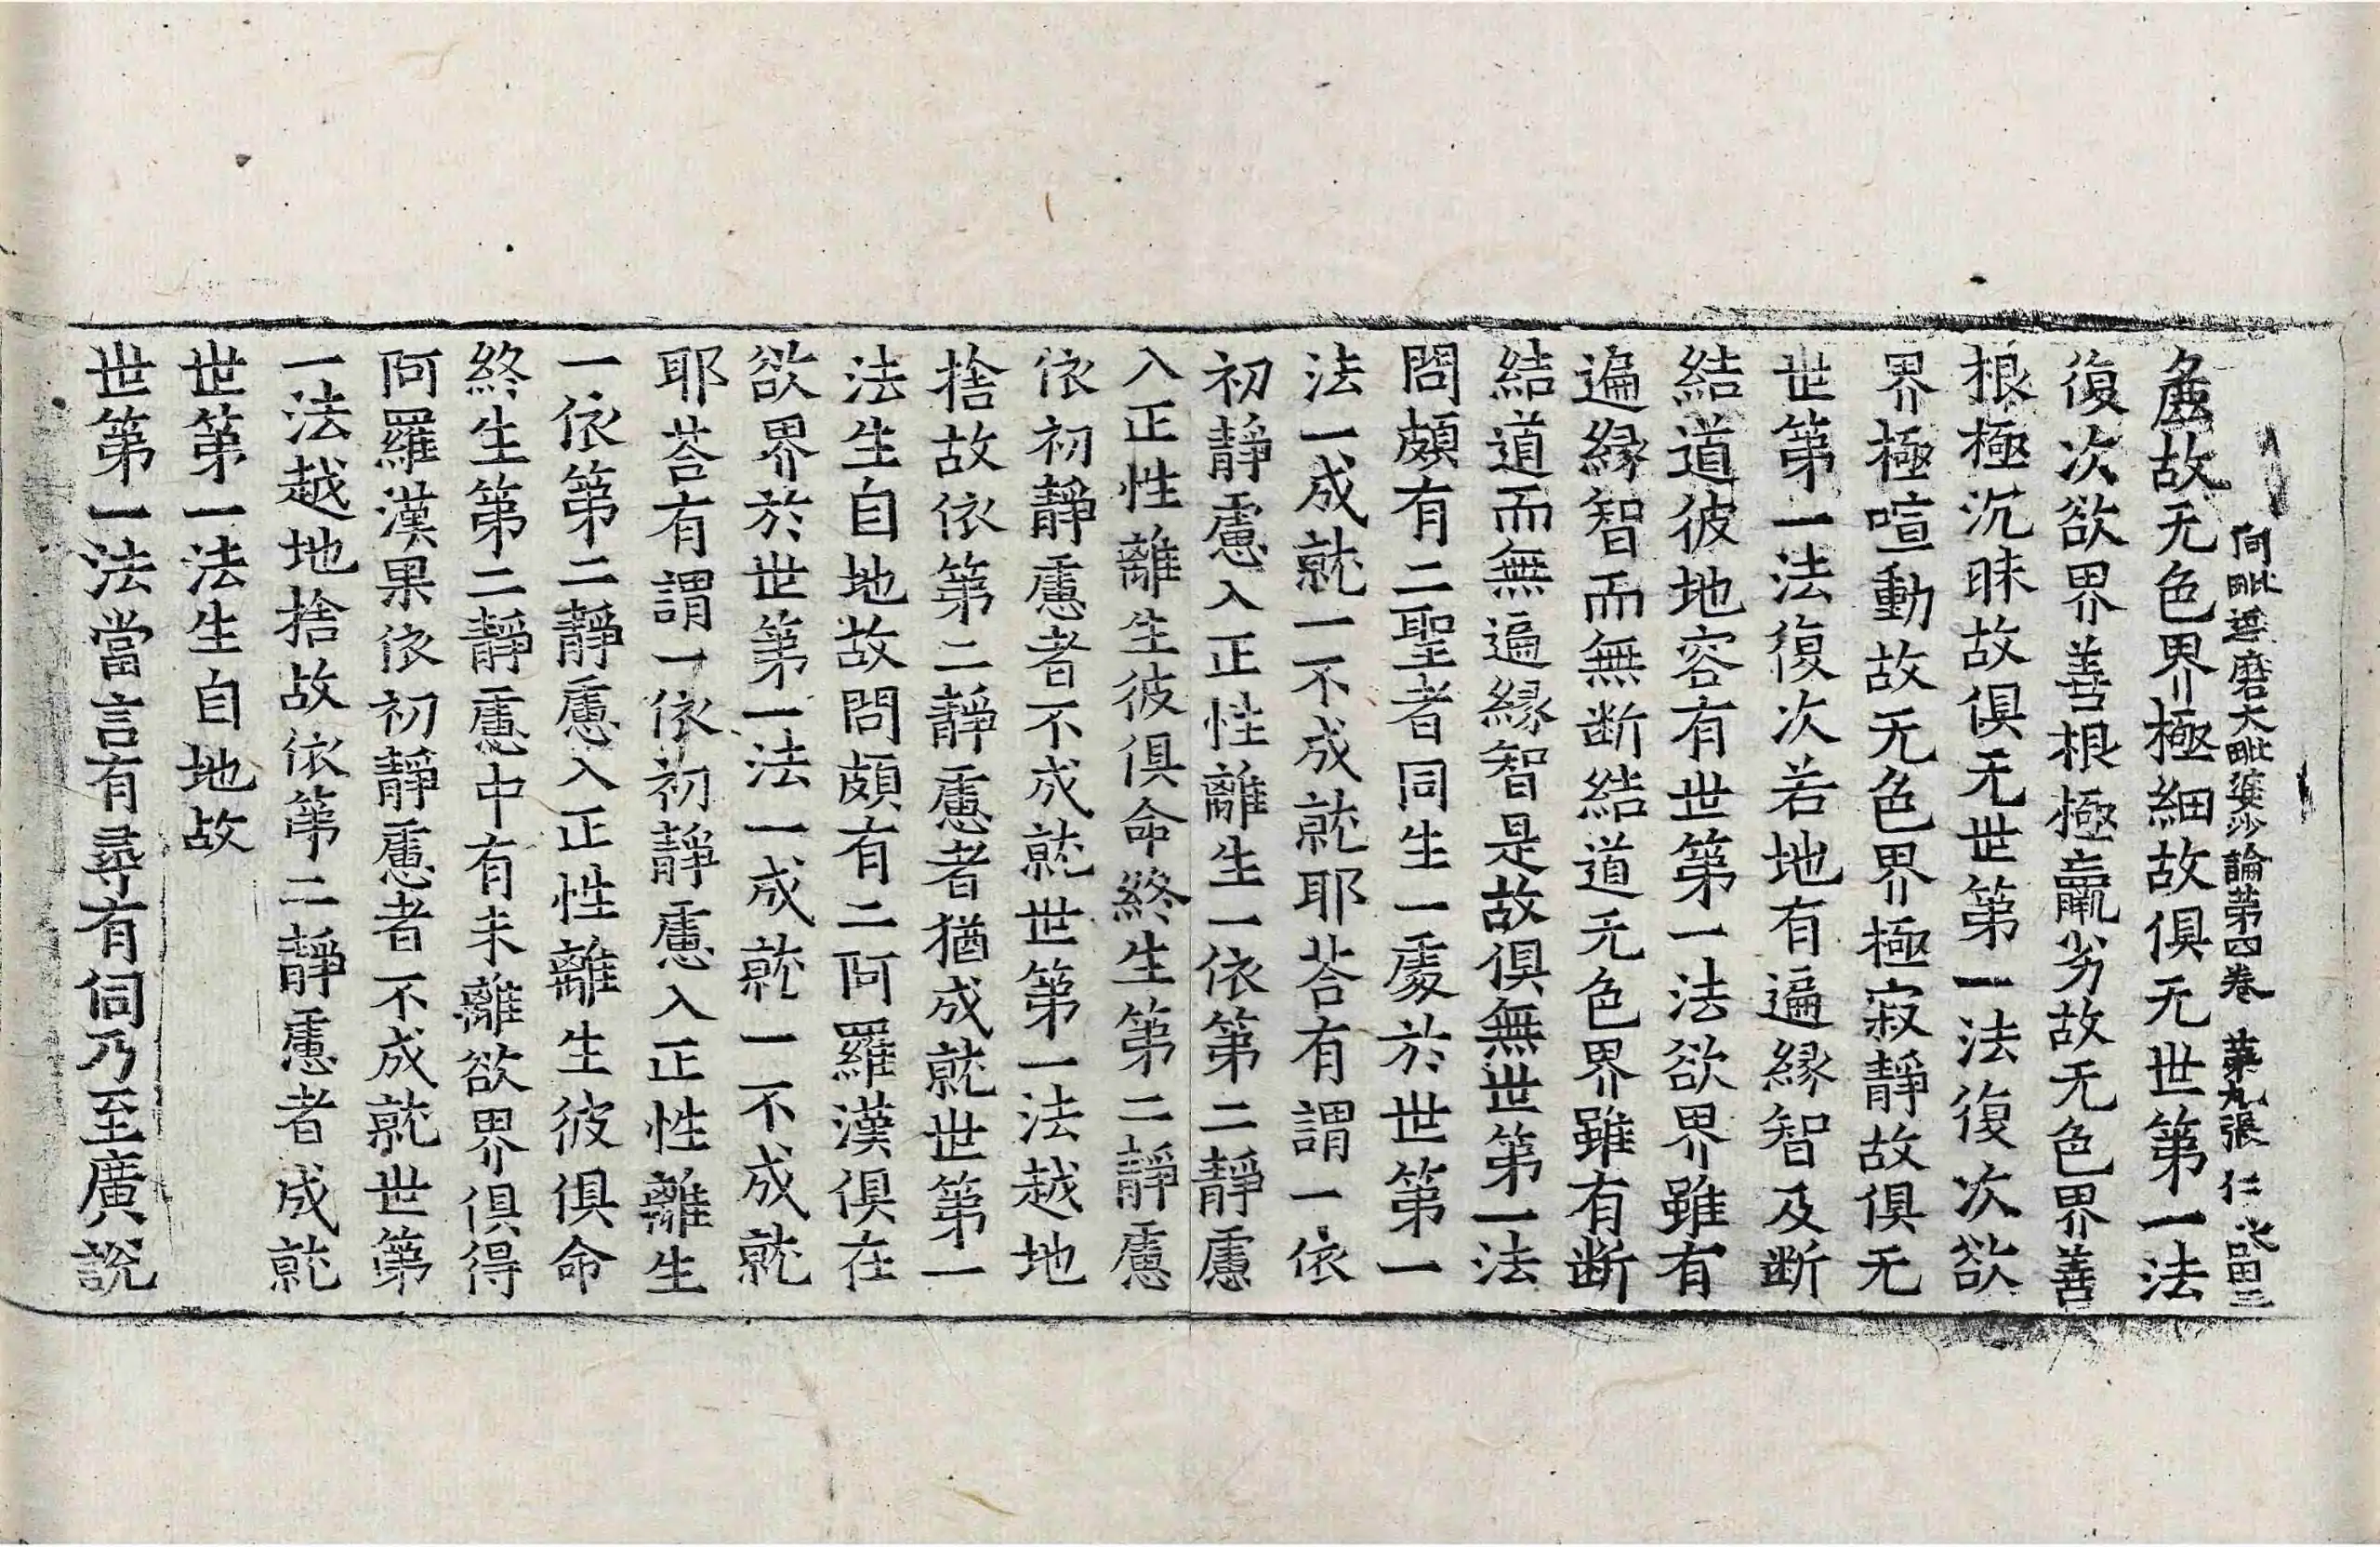 阿毗達磨大毗婆沙論第四卷 第九張 仁
麁故无色界極細故俱无世第一法
復次欲界善根極羸劣故无色界善
根極沉昧故俱无世第一法復次欲
界極喧動故无色界極寂靜故俱无
世第一法復次若地有遍緣智及断
結道彼地容有世第一法欲界雖有
遍緣智而無断結道无色界雖有断
結道而無遍緣智是故俱無世第一法
問頗有二聖者同生一處於世第一
法一成就一不成就耶荅有謂一依
初靜慮入正性離生一依第二靜慮
入正性離生彼俱命終生第二靜慮
依初靜慮者不成就世第一法越地
捨故依第二靜慮者猶成就世第一
法生自地故問頗有二阿羅漢俱在
欲界於世第一法一成就一不成就
耶荅有謂一依初靜慮入正性離生
一依第二靜慮入正性離生彼俱命
終生第二靜慮中有未離欲界俱得
阿羅漢果依初靜慮者不成就世第
一法越地捨故依第二靜慮者成就
世第一法生自地故
世第一法當言有尋有伺乃至廣說